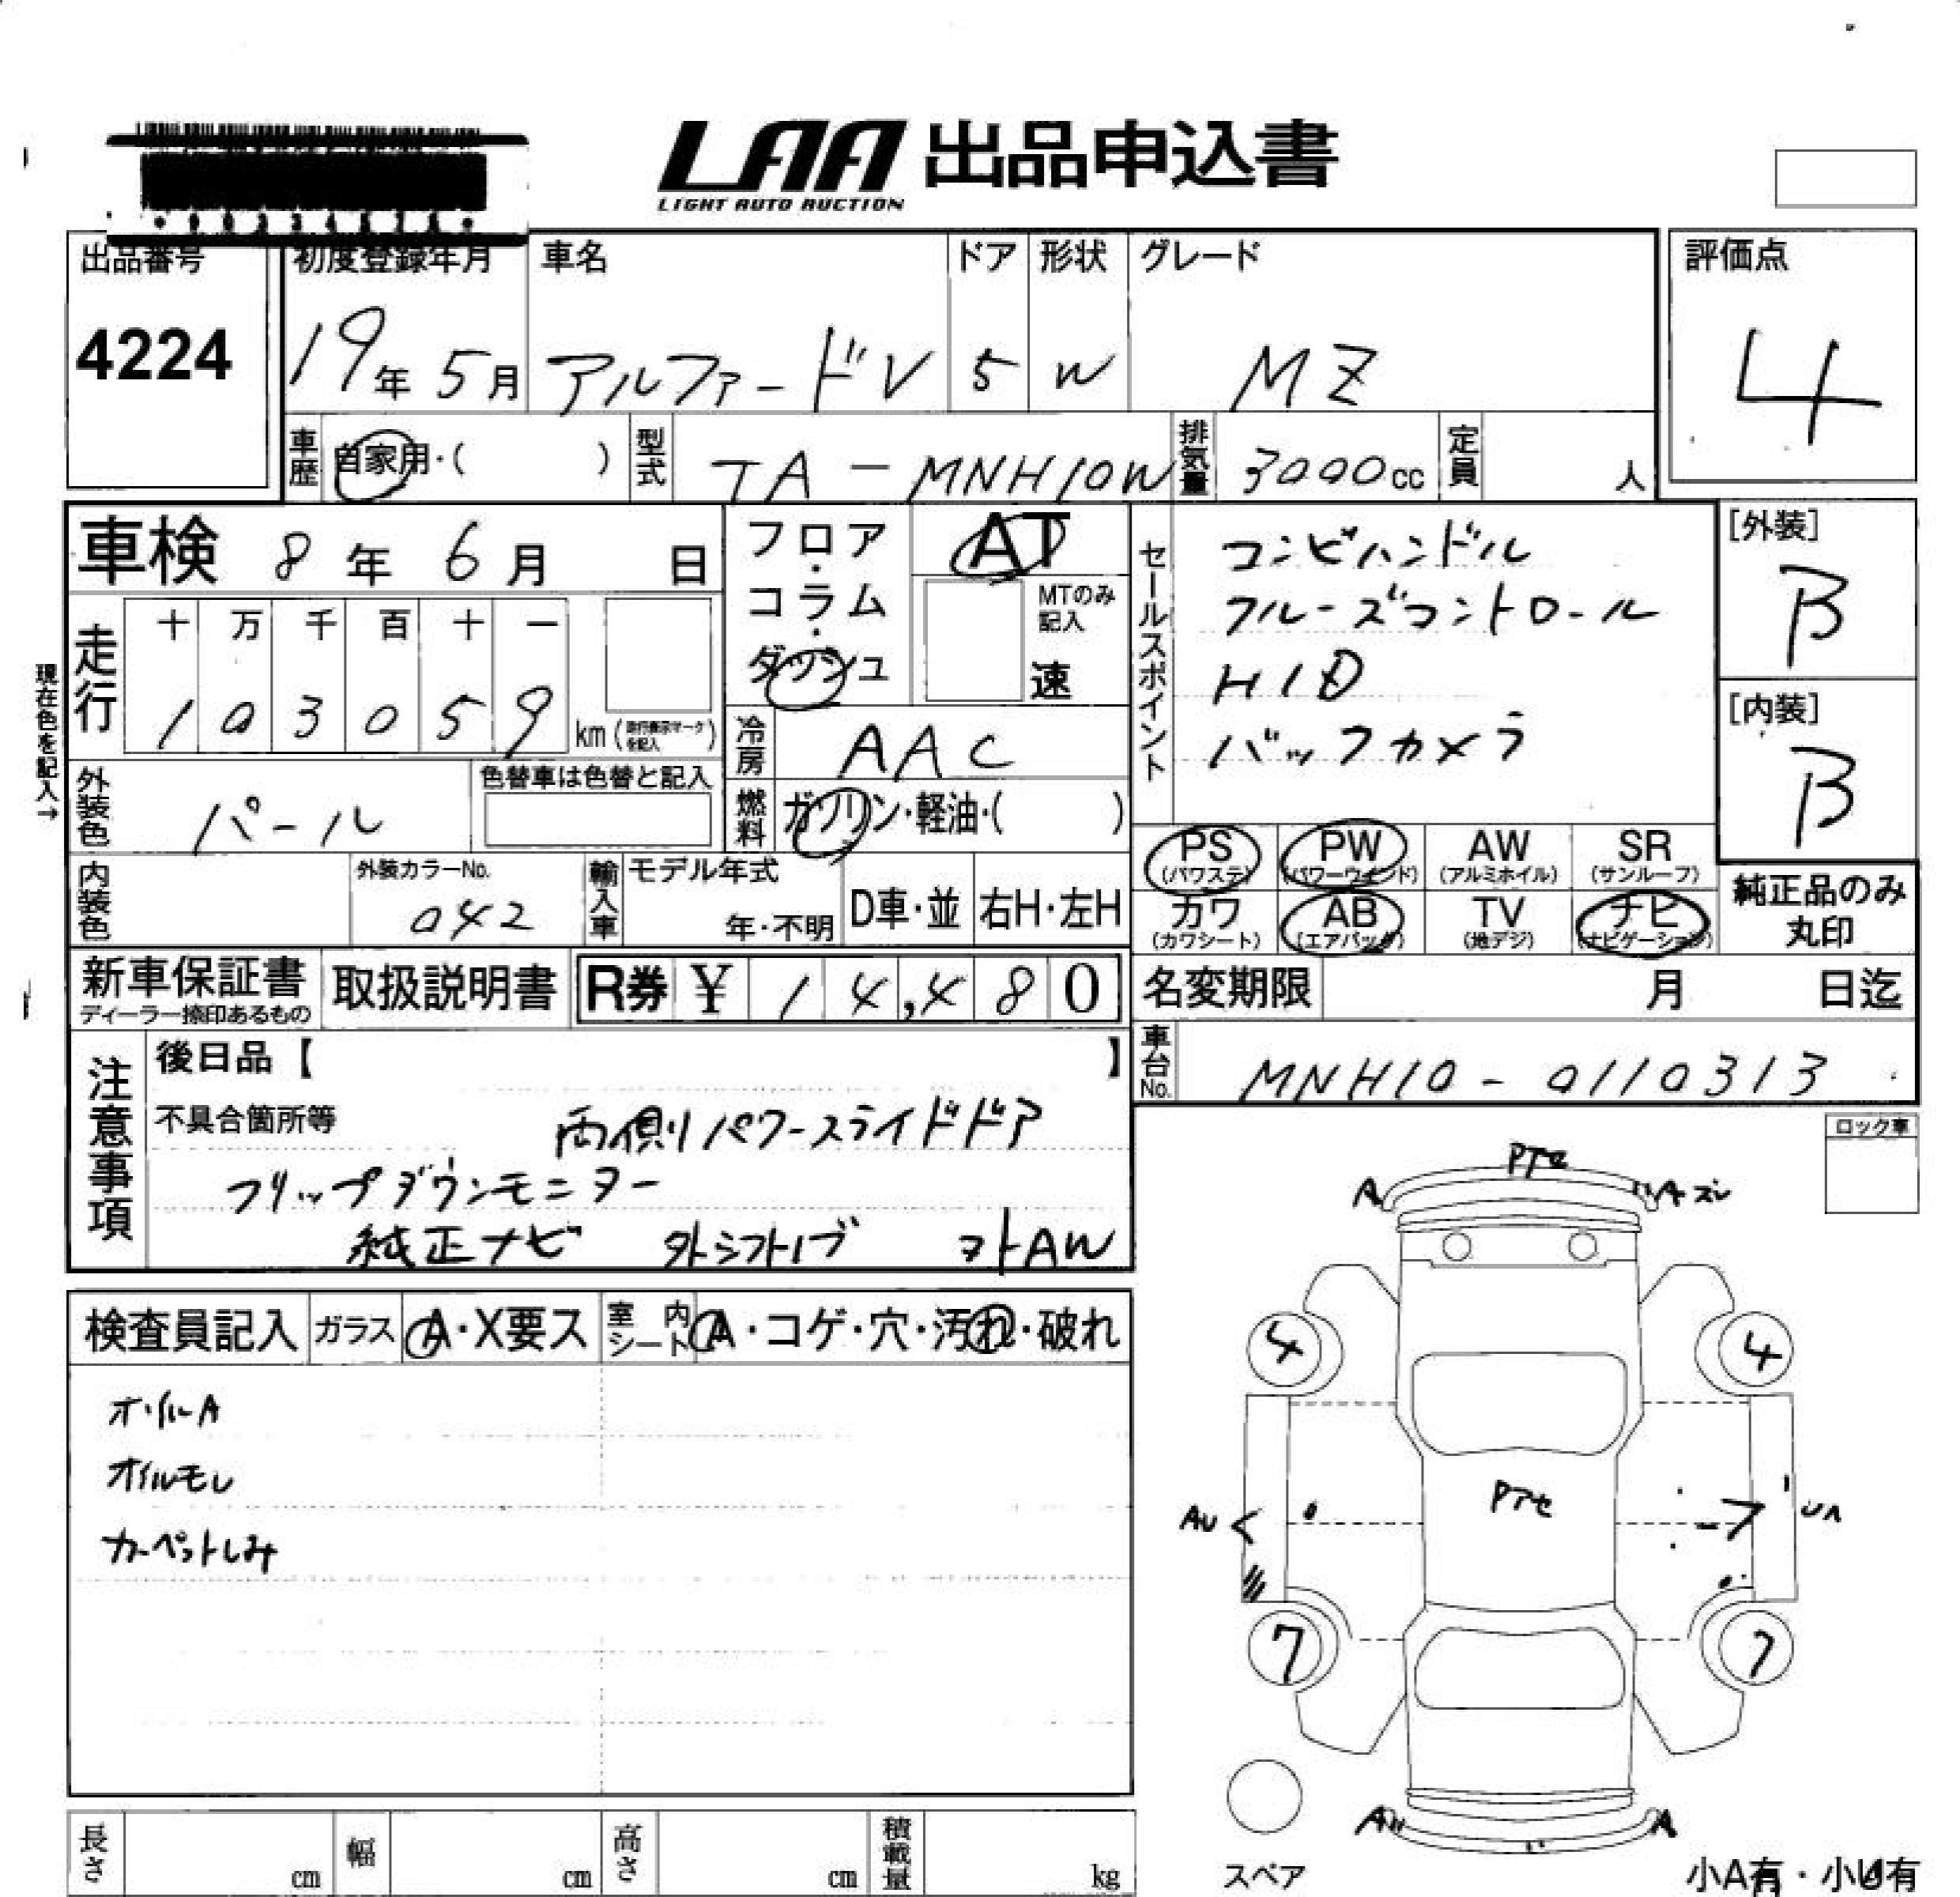 LAA 出品申込書
LIGHT AUTO AUCTION
出品番号 初度登録年月 車名 ドア 形状 グレード 評価点
4224 19年 5月 アルファードV 5 W MZ 4
車歴 自家用・( ) 型式 TA-MNH10W 排気量 3000cc 定員 人
車検 8年 6月 日
フロア・コラム・ダッシュ AT
MTのみ記入
速
セールスポイント
コンビハンドル
クルーズコントロール
HID
バックカメラ
[外装]
B
[内装]
B
現在色を記入→
走行 十 万 千 百 十 一
1 0 3 0 5 9 km (走行表示マークを記入)
冷房 AAC
外装色 パール 色替車は色替と記入
燃料 ガソリン・軽油・( )
PS (パワステ) PW (パワーウインド) AW (アルミホイル) SR (サンルーフ)
カワ (カワシート) AB (エアバッグ) TV (地デジ) ナビ (ナビゲーション)
純正品のみ
丸印
内装色 外装カラーNo. 042 輸入車 モデル年式 年・不明 D車・並 右H・左H
新車保証書 取扱説明書 R券 ¥ 14,480 名変期限 月 日迄
ディーラー捺印あるもの
車台No. MNH10-0110313
注意事項
後日品【 】
不具合箇所等 両側パワースライドドア
フリップダウンモニター
純正ナビ 外シフトノブ ヌトAW
ロック車
検査員記入 ガラス A・X要ス 室内シート A・コゲ・穴・汚れ・破れ
オイルA
オイルモレ
カーペットしみ
A A ズレ
4 4
AU UA
7 7
A A
スペア
小A有・小U有
長さ cm 幅 cm 高さ cm 積載量 kg